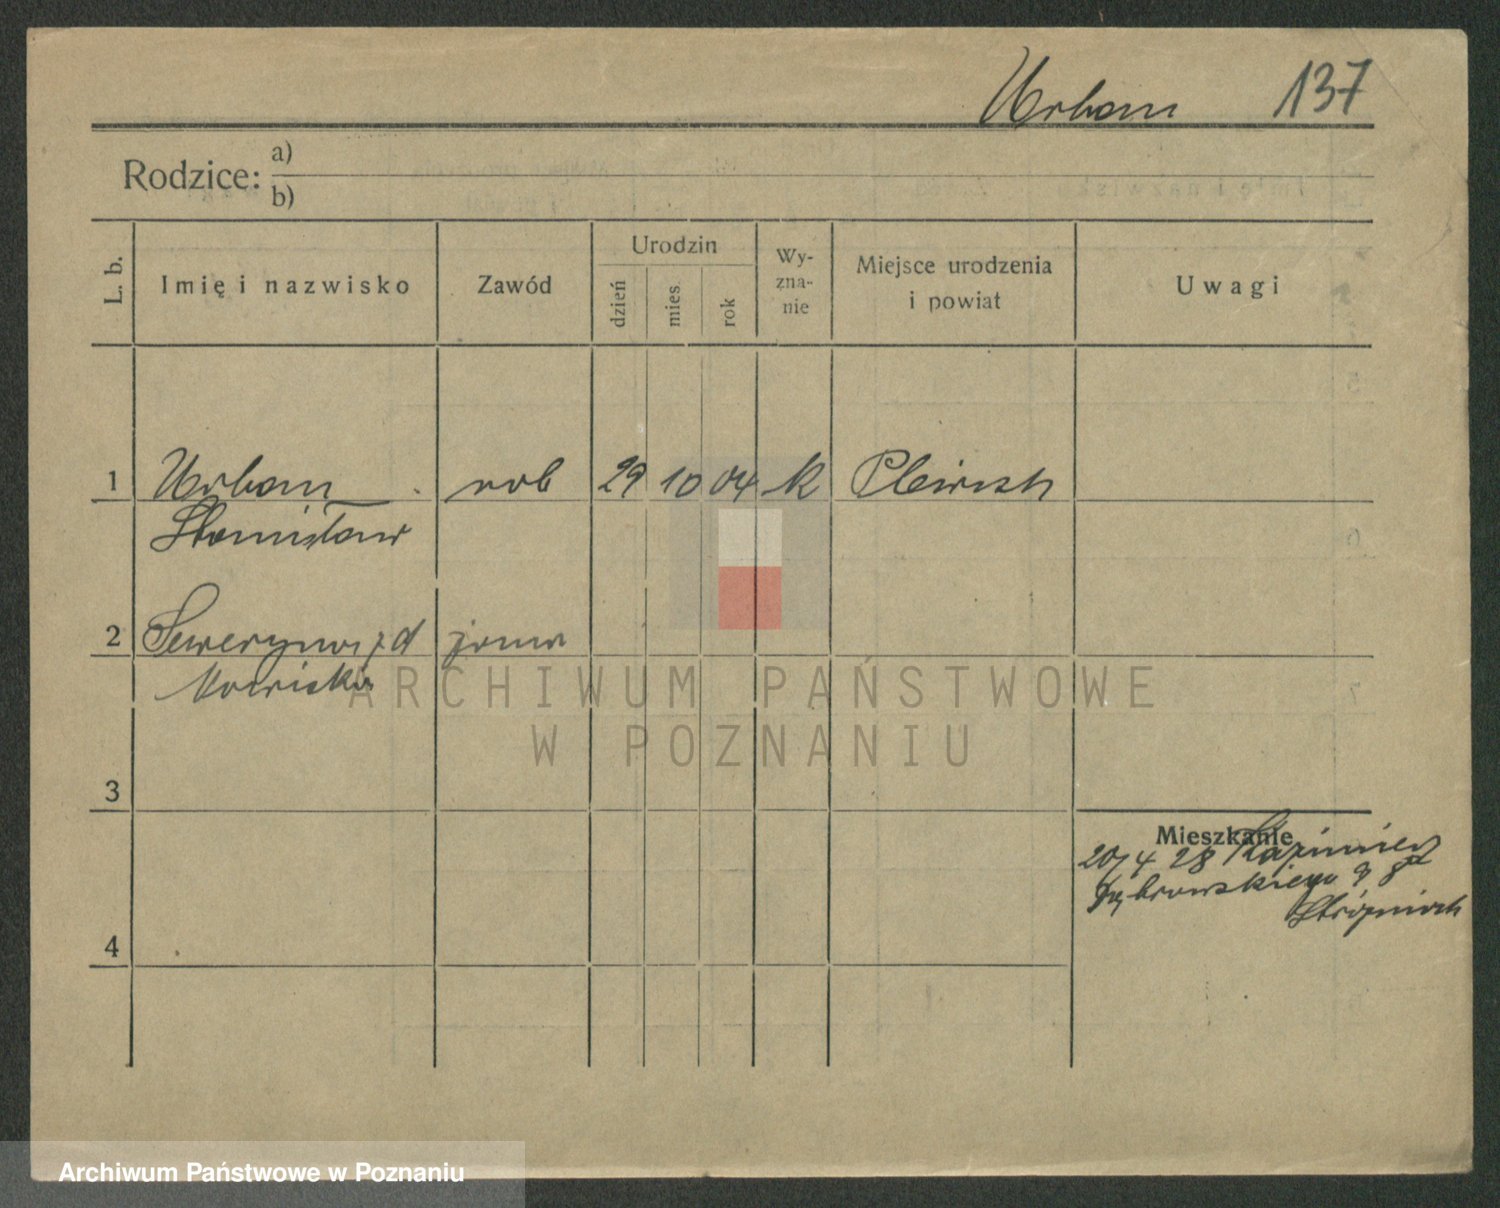 Urban 137
Rodzice: a)
b)
L. b. Imię i nazwisko Zawód Urodzin dzień mies. rok Wy-zna-nie Miejsce urodzenia i powiat Uwagi
1 Urban rob 29 10 04 k
Stanisław
2 Seweryna z d żona
3
Mieszkanie
20/4 28 Kazimierz
Dąbrowskiego 8
4
ARCHIWUM PAŃSTWOWE
W POZNANIU
Archiwum Państwowe w Poznaniu